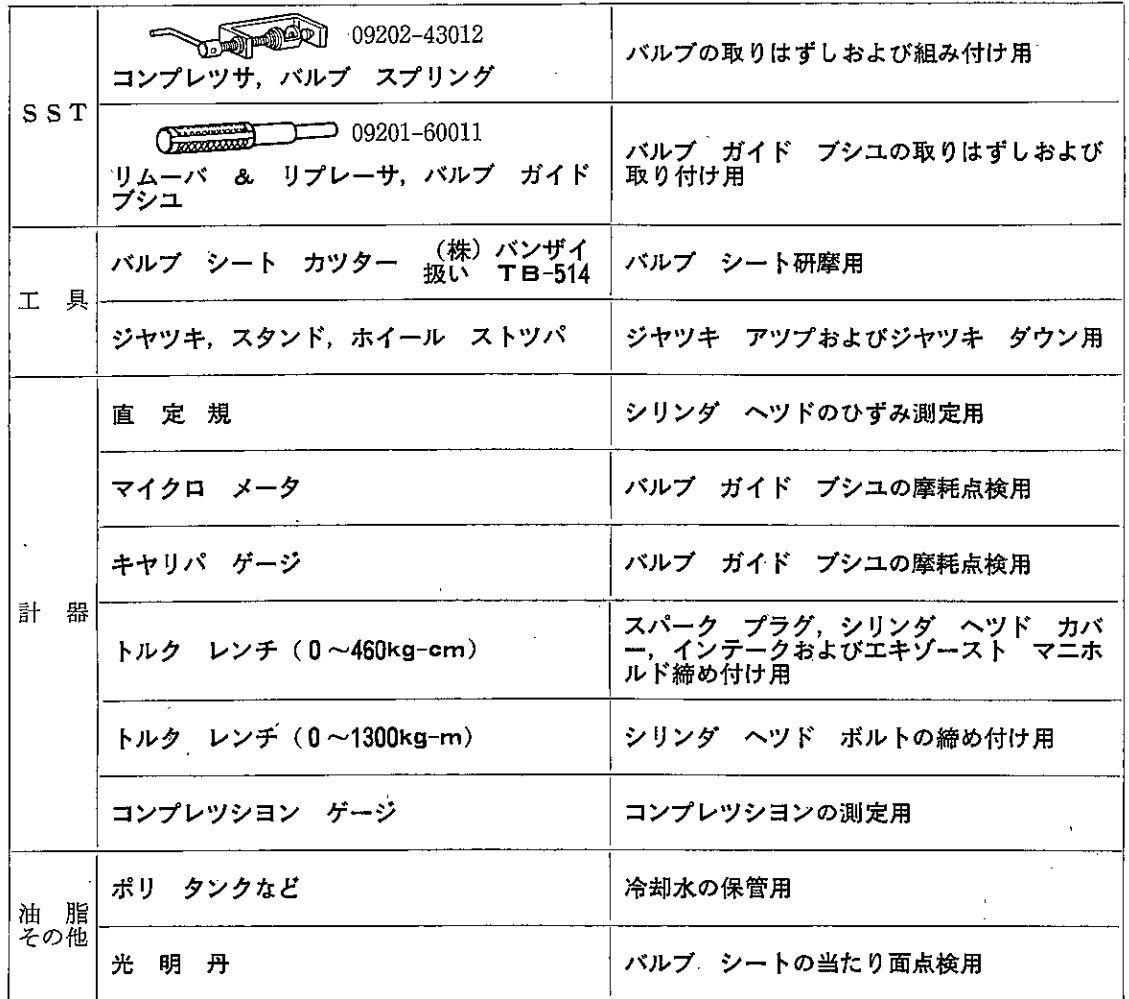 SST
09202-43012
コンプレツサ，バルブ　スプリング
バルブの取りはずしおよび組み付け用
09201-60011
リムーバ　&　リプレーサ，バルブ　ガイド
ブシユ
バルブ　ガイド　ブシユの取りはずしおよび
取り付け用
工　具
バルブ　シート　カツター　（株）バンザイ
扱い　TB-514
バルブ　シート研摩用
ジヤツキ，スタンド，ホイール　ストツパ
ジヤツキ　アツプおよびジヤツキ　ダウン用
計　器
直　定　規
シリンダ　ヘツドのひずみ測定用
マイクロ　メータ
バルブ　ガイド　ブシユの摩耗点検用
キヤリパ　ゲージ
バルブ　ガイド　ブシユの摩耗点検用
トルク　レンチ（0～460kg-cm）
スパーク　プラグ，シリンダ　ヘツド　カバ
ー，インテークおよびエキゾースト　マニホ
ルド締め付け用
トルク　レンチ（0～1300kg-m）
シリンダ　ヘツド　ボルトの締め付け用
コンプレツシヨン　ゲージ
コンプレツシヨンの測定用
油　脂
その他
ポリ　タンクなど
冷却水の保管用
光　明　丹
バルブ　シートの当たり面点検用